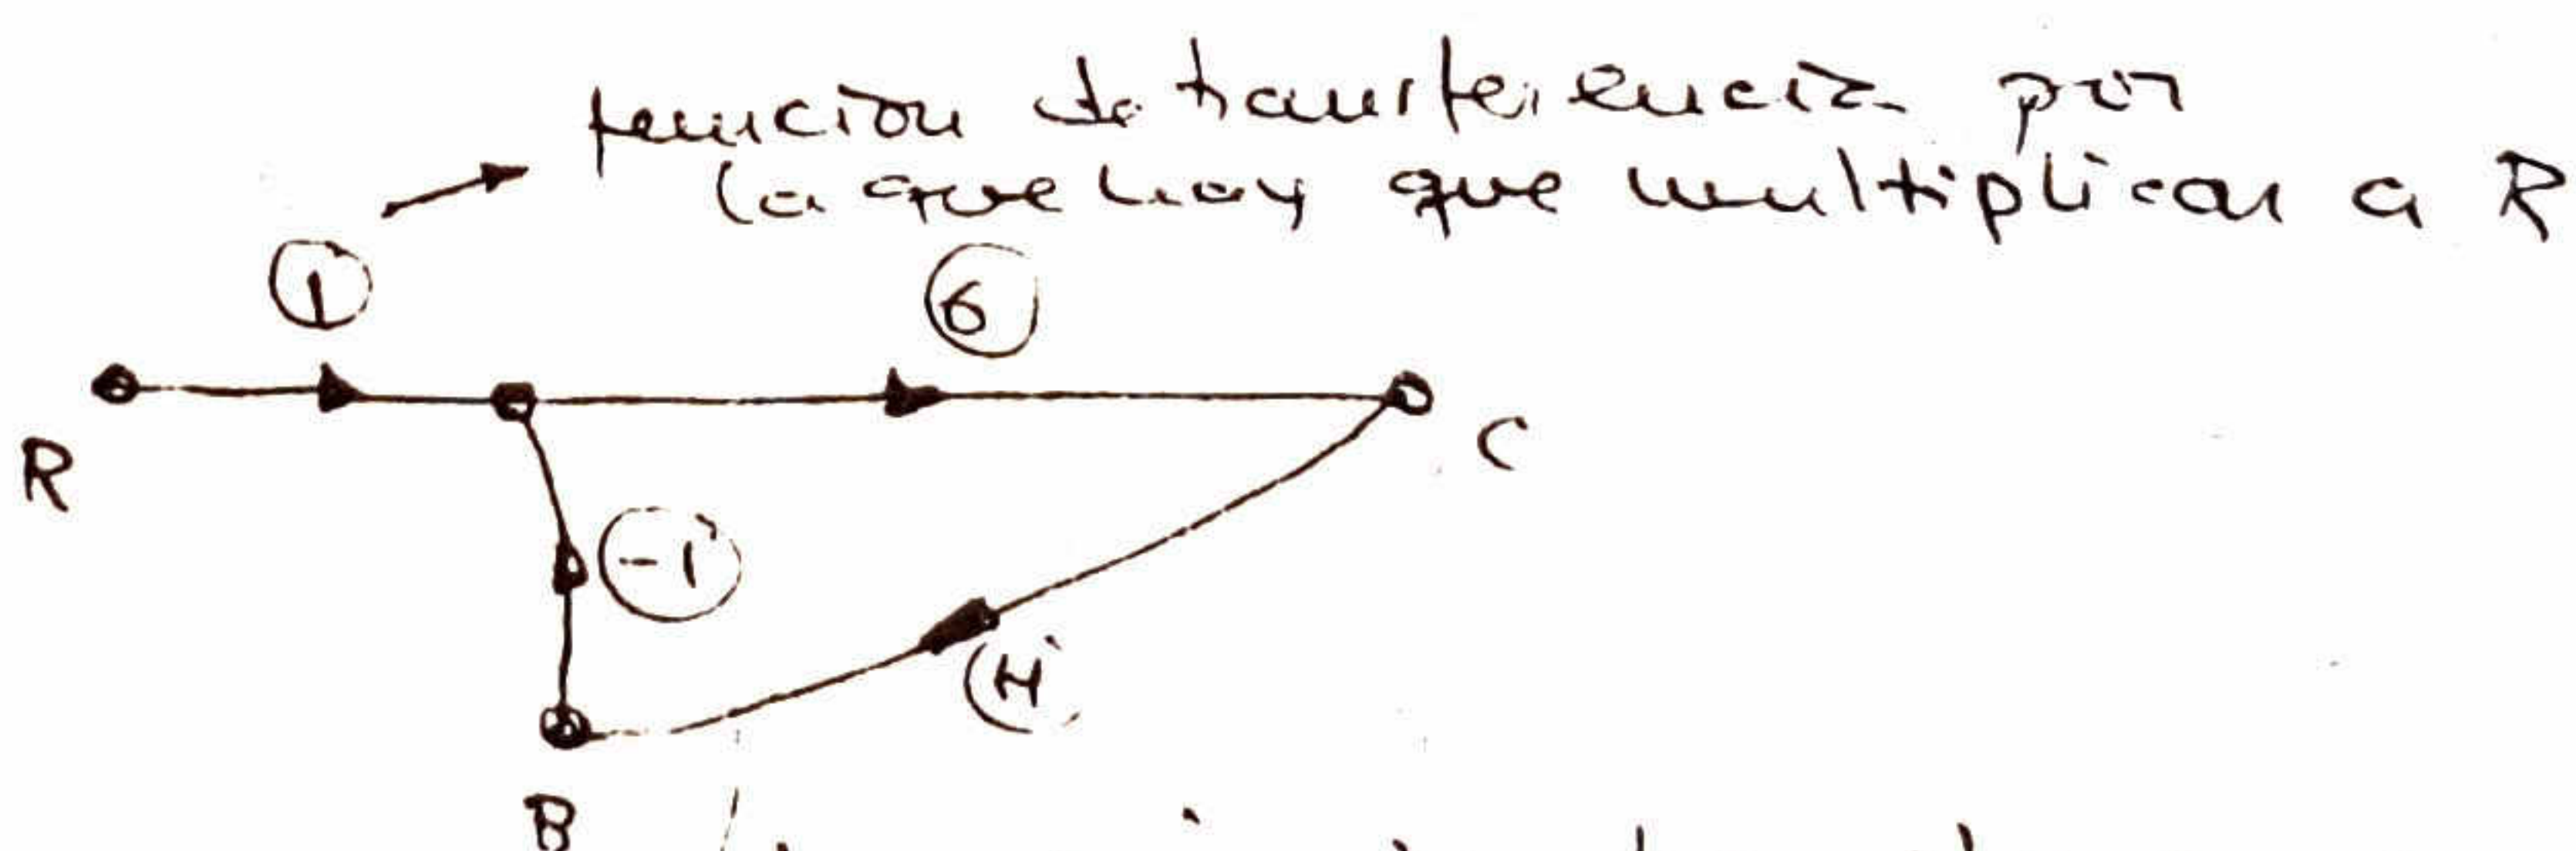 función de transferencia por
la que hay que multiplicar a R
1
G
R
C
-1
H
B